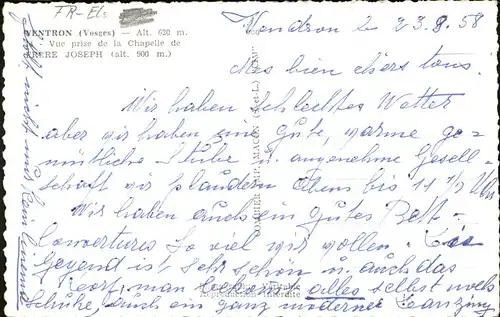 FR-El.
VENTRON (Vosges) — Alt. 630 m.
Vue prise de la Chapelle de
FRERE JOSEPH (alt. 900 m.)
Vendron le 23.8.58
Mes bien chers tous.
Wir haben schlechtes Wetter
aber wir haben eine gute, warme ge-
mütliche Stube u. angenehme Gesell-
schaft wir plaudern Abens bis 11 1/2 Uhr
Wir haben auch ein gutes Bett-
Couvertures so viel wir wollen.
Gegend ist sehr schön u. auch das
man bekommt alles selbst noch
Schuhe, auch ein ganz moderner Tanzing
COMBIER IMP. MACON (S.-et-L.)
Reproduction Interdite